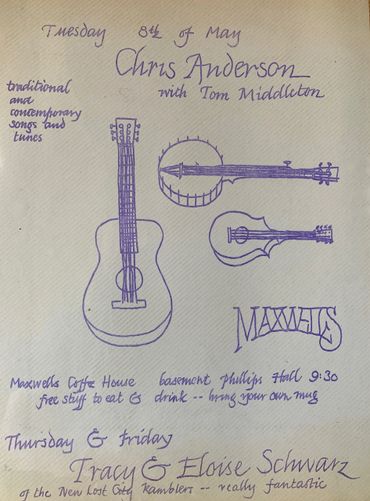 Tuesday 8th of May
Chris Anderson
with Tom Middleton
traditional
and
contemporary
songs and
tunes
MAXWELLS
Maxwells Coffee House basement Phillips Hall 9:30
free stuff to eat & drink -- bring your own mug
Thursday & Friday
Tracy & Eloise Schwarz
of the New Lost City Ramblers -- really fantastic